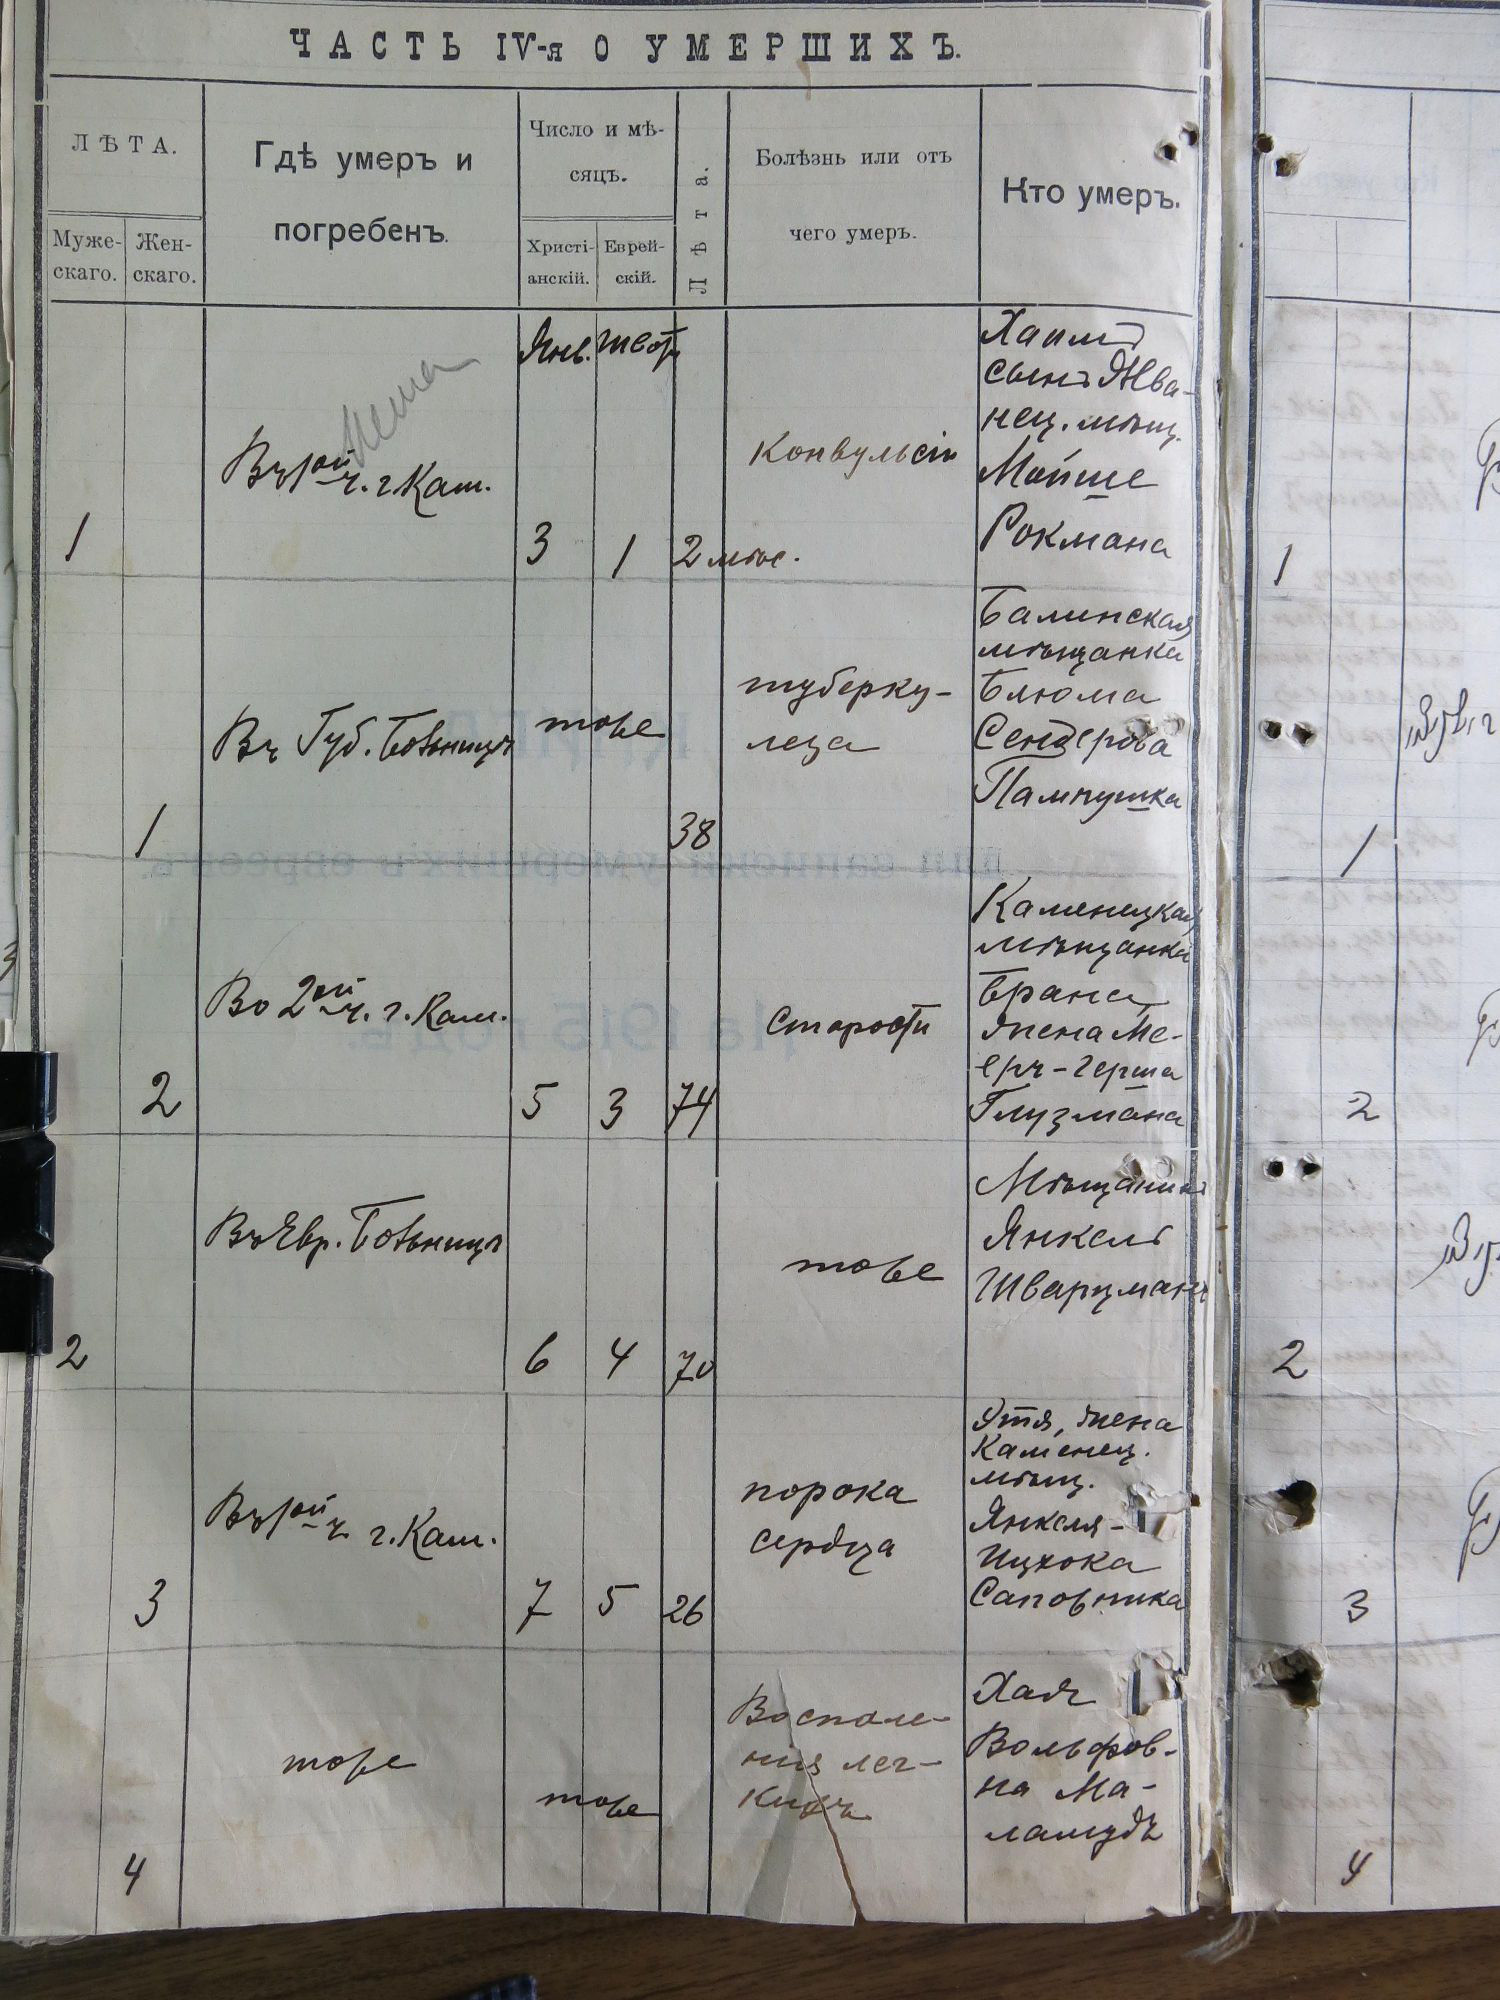 ЧАСТЬ IV-я О УМЕРШИХЪ.
ЛѢТА.
Муже-
скаго.
Жен-
скаго.
Гдѣ умеръ и
погребенъ.
Число и мѣ-
сяцъ.
Христі-
анскій.
Еврей-
скій.
Лѣта.
Болѣзнь или отъ
чего умеръ.
Кто умеръ.
Янв.
1
Въ 1ой ч. г. Кам.
3
1
2 мѣс.
Конвульсіи
Хаимъ
сынъ Жва-
нец. мѣщ.
Мойше
Рокмана
1
Въ Губ. Больницѣ
тоже
38
туберку-
леза
Балинская
мѣщанка
Блюма
Сендерова
Пампушка
2
Во 2ой ч. г. Кам.
5
3
74
Старости
Каменецкая
мѣщанка
Брана,
жена Ме-
еръ-Герша
Глузмана
2
Въ Евр. Больницѣ
6
4
70
тоже
Мѣщанинъ
Янкель
Шварцманъ
3
Въ 1ой ч. г. Кам.
7
5
26
порока
сердца
Этя, жена
Каменец.
мѣщ.
Янкеля-
Ицхока
Саповника
4
тоже
тоже
Воспале-
нія лег-
кихъ
Хая
Вольфов-
на Ма-
ламудъ
1
1
2
2
3
4